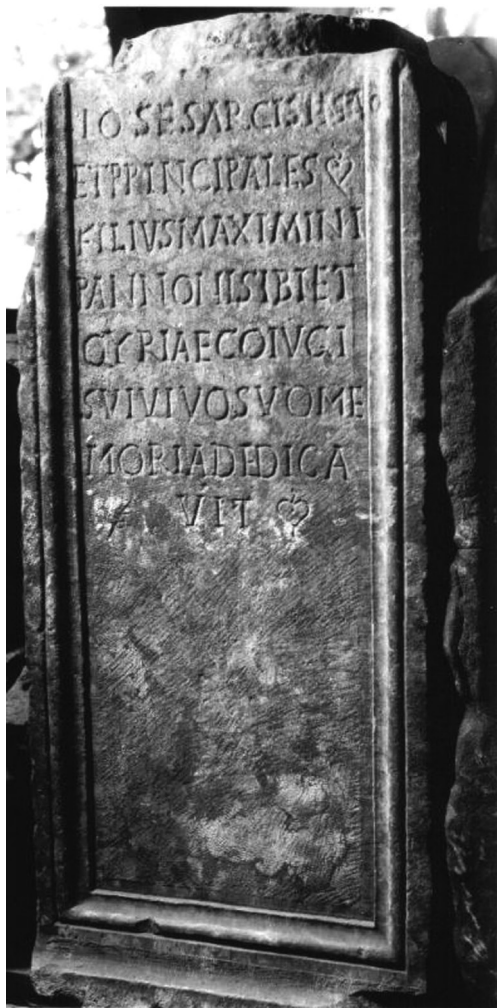 IOSES
ET PRINCIPALES
FILIVS MAXIMINI
PANNONI SIBI ET
QYRIAE COIVGI
SVI VIVO SVO ME
MORIA DEDICA
VIT